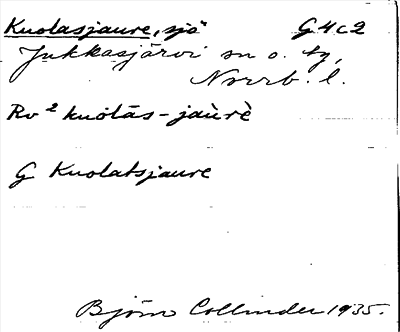 Kuolasjaure, sjö G4c2
Jukkasjärvi sn o. tg,
Norrb. l.
Rv 2 kuo̔tās-jau̔rè
G Kuolatsjaure
Björn Collinder 1935.